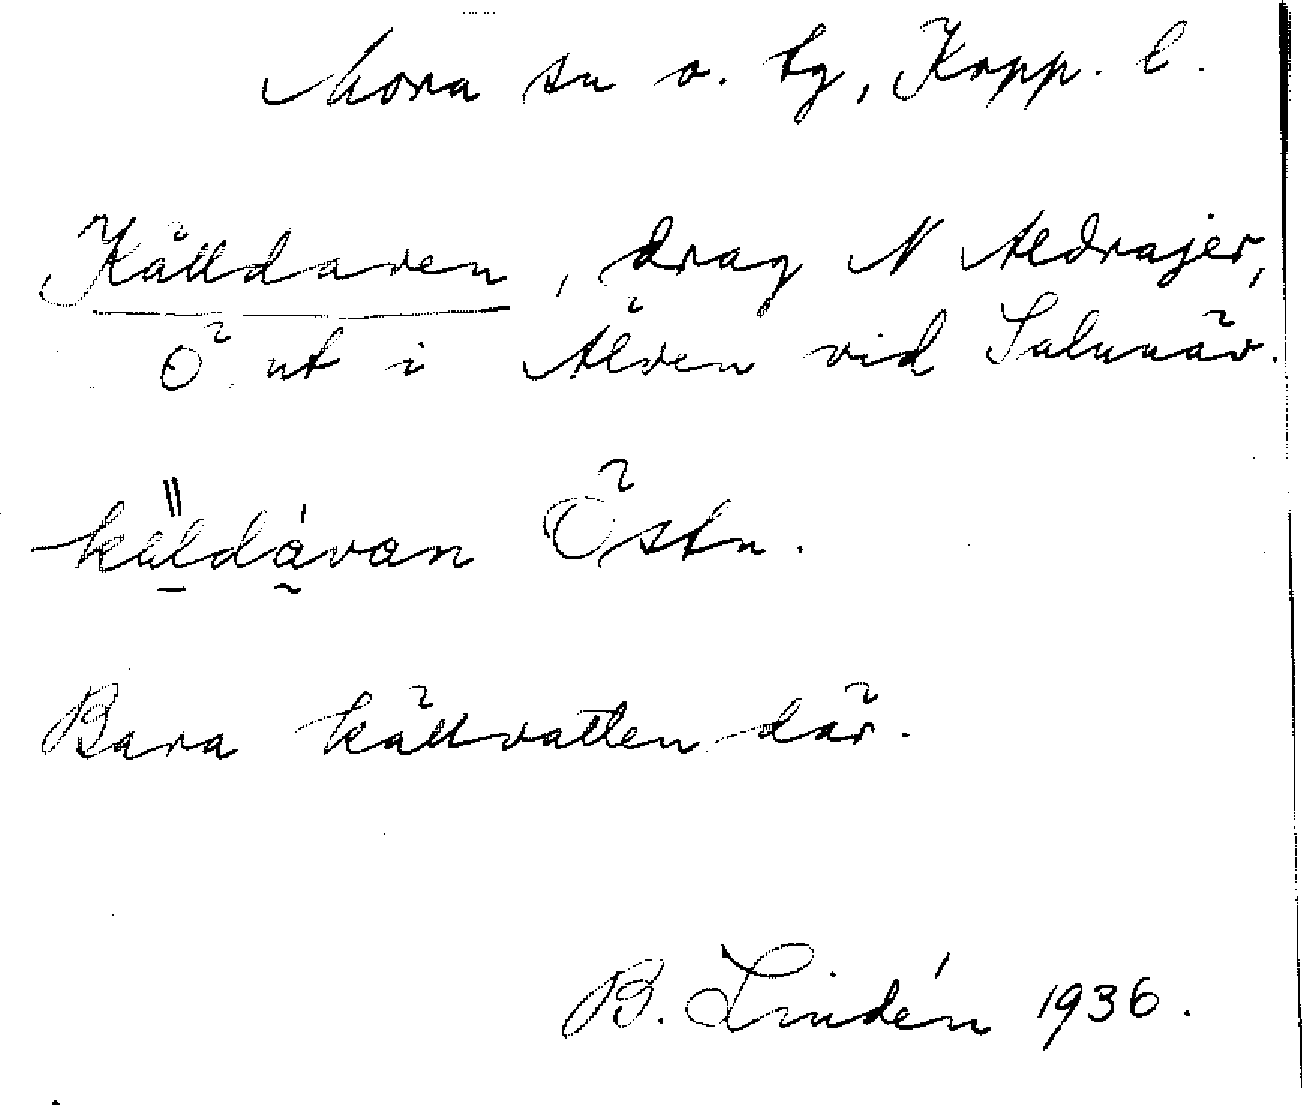 Mora sn o. tg, Kopp. l.
Källdaven, drag N Aldrajer,
Ö ut i Älven vid Salunäv.
käldávan Östn.
Bara källvatten där.
B. Lindén 1936.